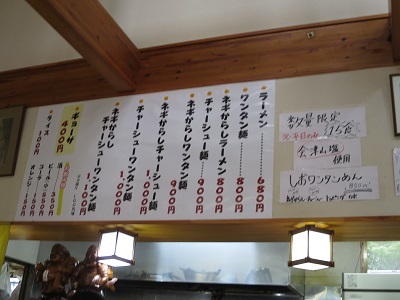 ラーメン 680円
ワンタン麺 800円
ネギからしラーメン 800円
チャーシュー麺 900円
ネギからしワンタン麺 900円
チャーシューワンタン麺 1,000円
ネギからしチャーシュー麺 1,000円
ネギからしチャーシューワンタン麺
ギョーザ 400円
ライス 100円
数量限定
15食
会津山塩
使用
しおワンタンめん
850円